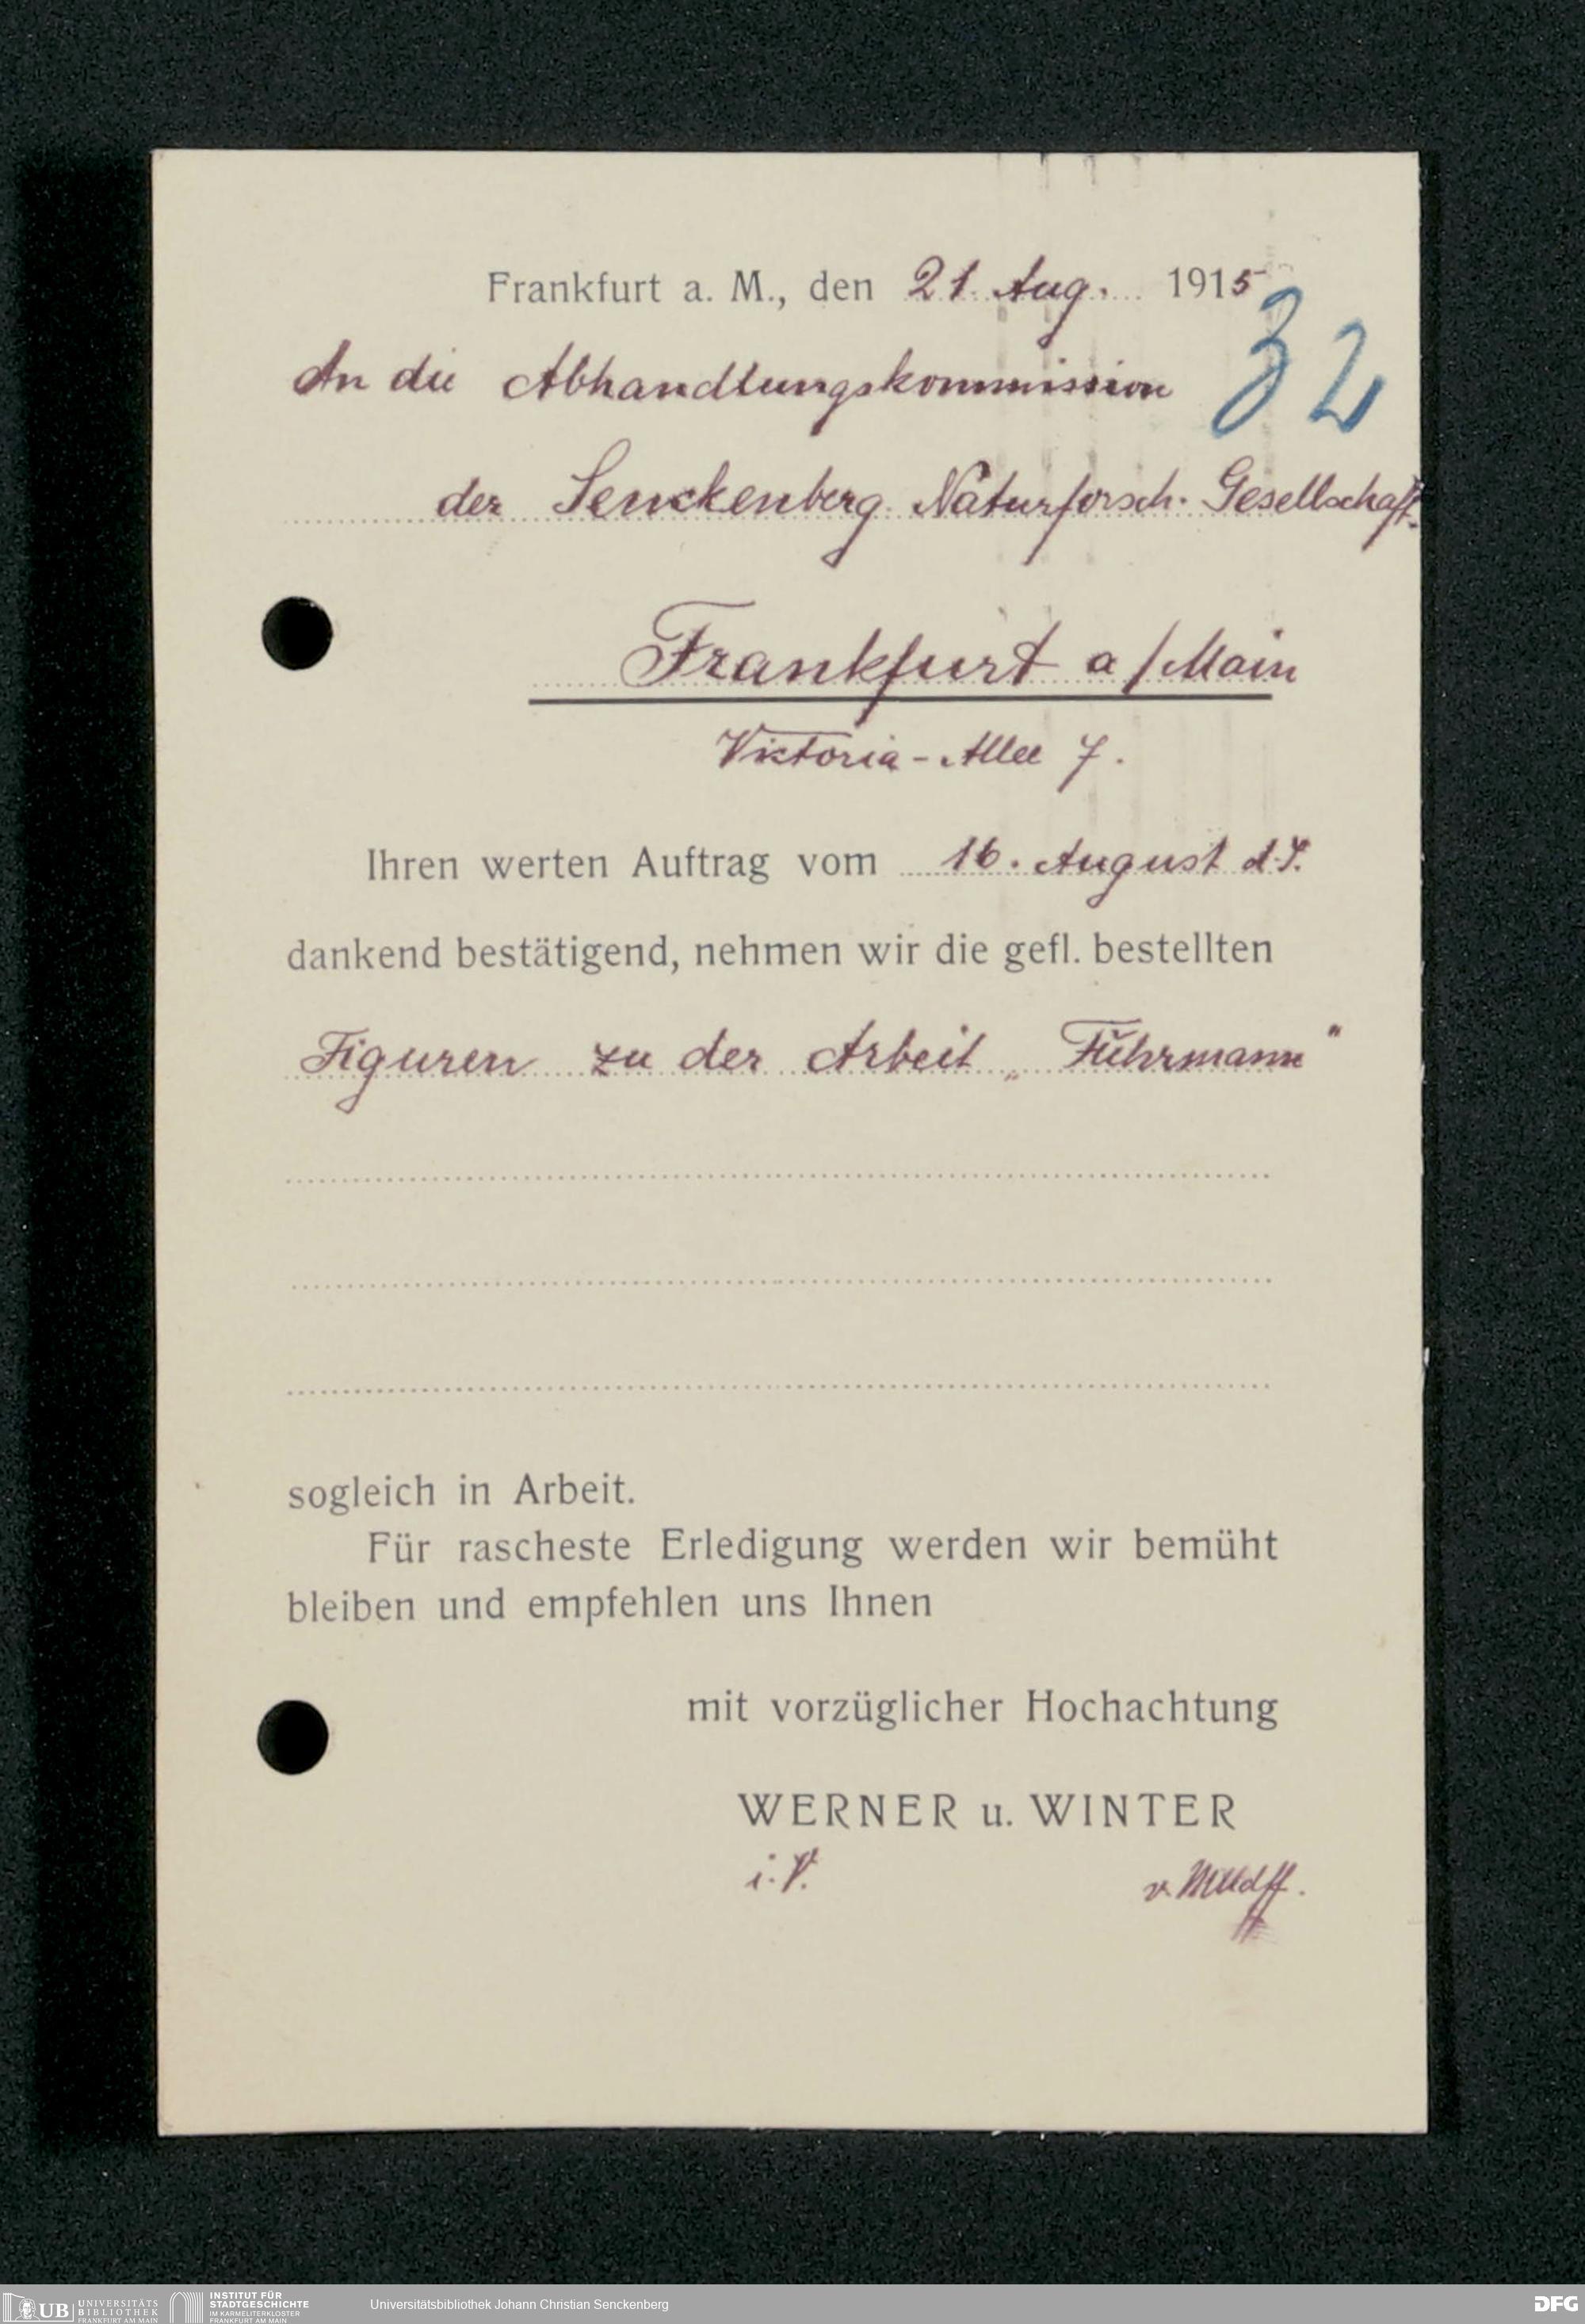 Frankfurt a. M., den 21. Aug. 1915
32
An die Abhandlungskommission
der Senckenberg. Naturforsch. Gesellschaft.
Frankfurt a/Main
Viktoria-Allee 7.
Ihren werten Auftrag vom 16. August d. J.
dankend bestätigend, nehmen wir die gefl. bestellten
Figuren zu der Arbeit „Fuhrmann“
sogleich in Arbeit.
Für rascheste Erledigung werden wir bemüht
bleiben und empfehlen uns Ihnen
mit vorzüglicher Hochachtung
WERNER u. WINTER
i. V.
UB UNIVERSITÄTS
BIBLIOTHEK
FRANKFURT AM MAIN
INSTITUT FÜR
STADTGESCHICHTE
IM KARMELITERKLOSTER
FRANKFURT AM MAIN
Universitätsbibliothek Johann Christian Senckenberg
DFG